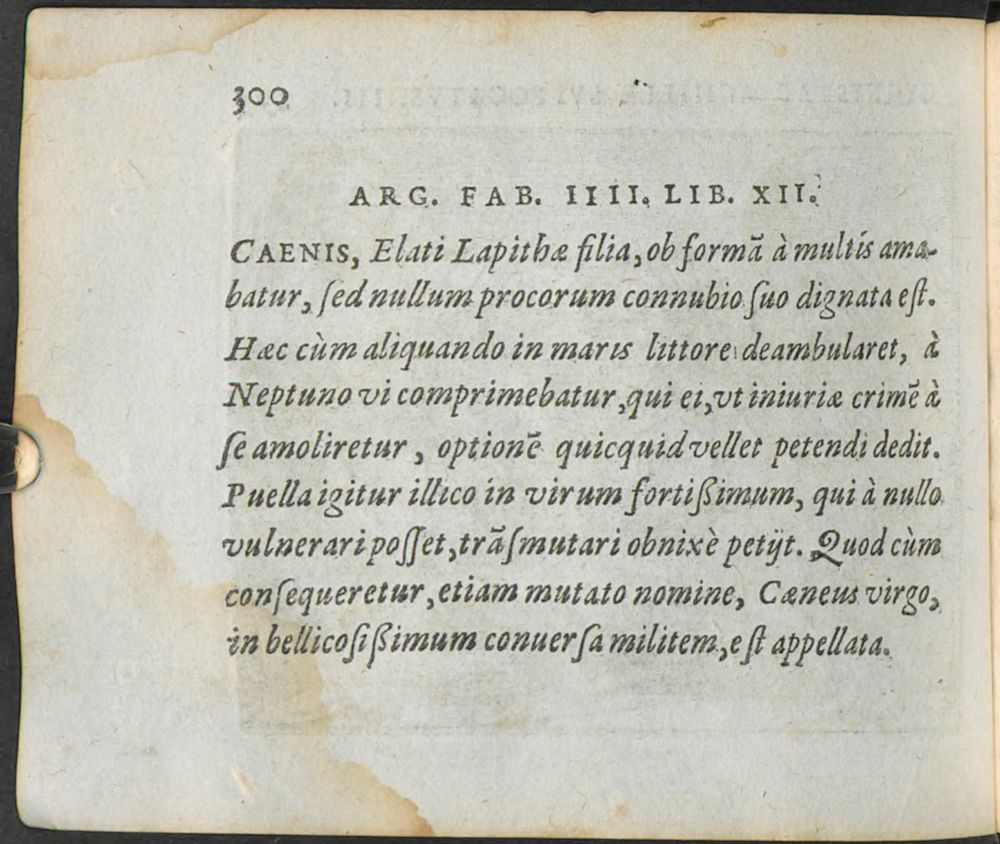 300
ARG. FAB. IIII. LIB. XII.
CAENIS, Elati Lapithæ filia, ob formã à multis ama-
batur, ſed nullum procorum connubio ſuo dignata eſt.
Hæc cùm aliquando in maris littore deambularet, à
Neptuno vi comprimebatur, qui ei, vt iniuriæ crimẽ à
ſe amoliretur, optionẽ quicquid vellet petendi dedit.
Puella igitur illico in virum fortißimum, qui à nullo
vulnerari poſſet, trãſmutari obnixè petijt. Quod cùm
conſequeretur, etiam mutato nomine, Cæneus virgo,
in bellicoſißimum conuerſa militem, eſt appellata.